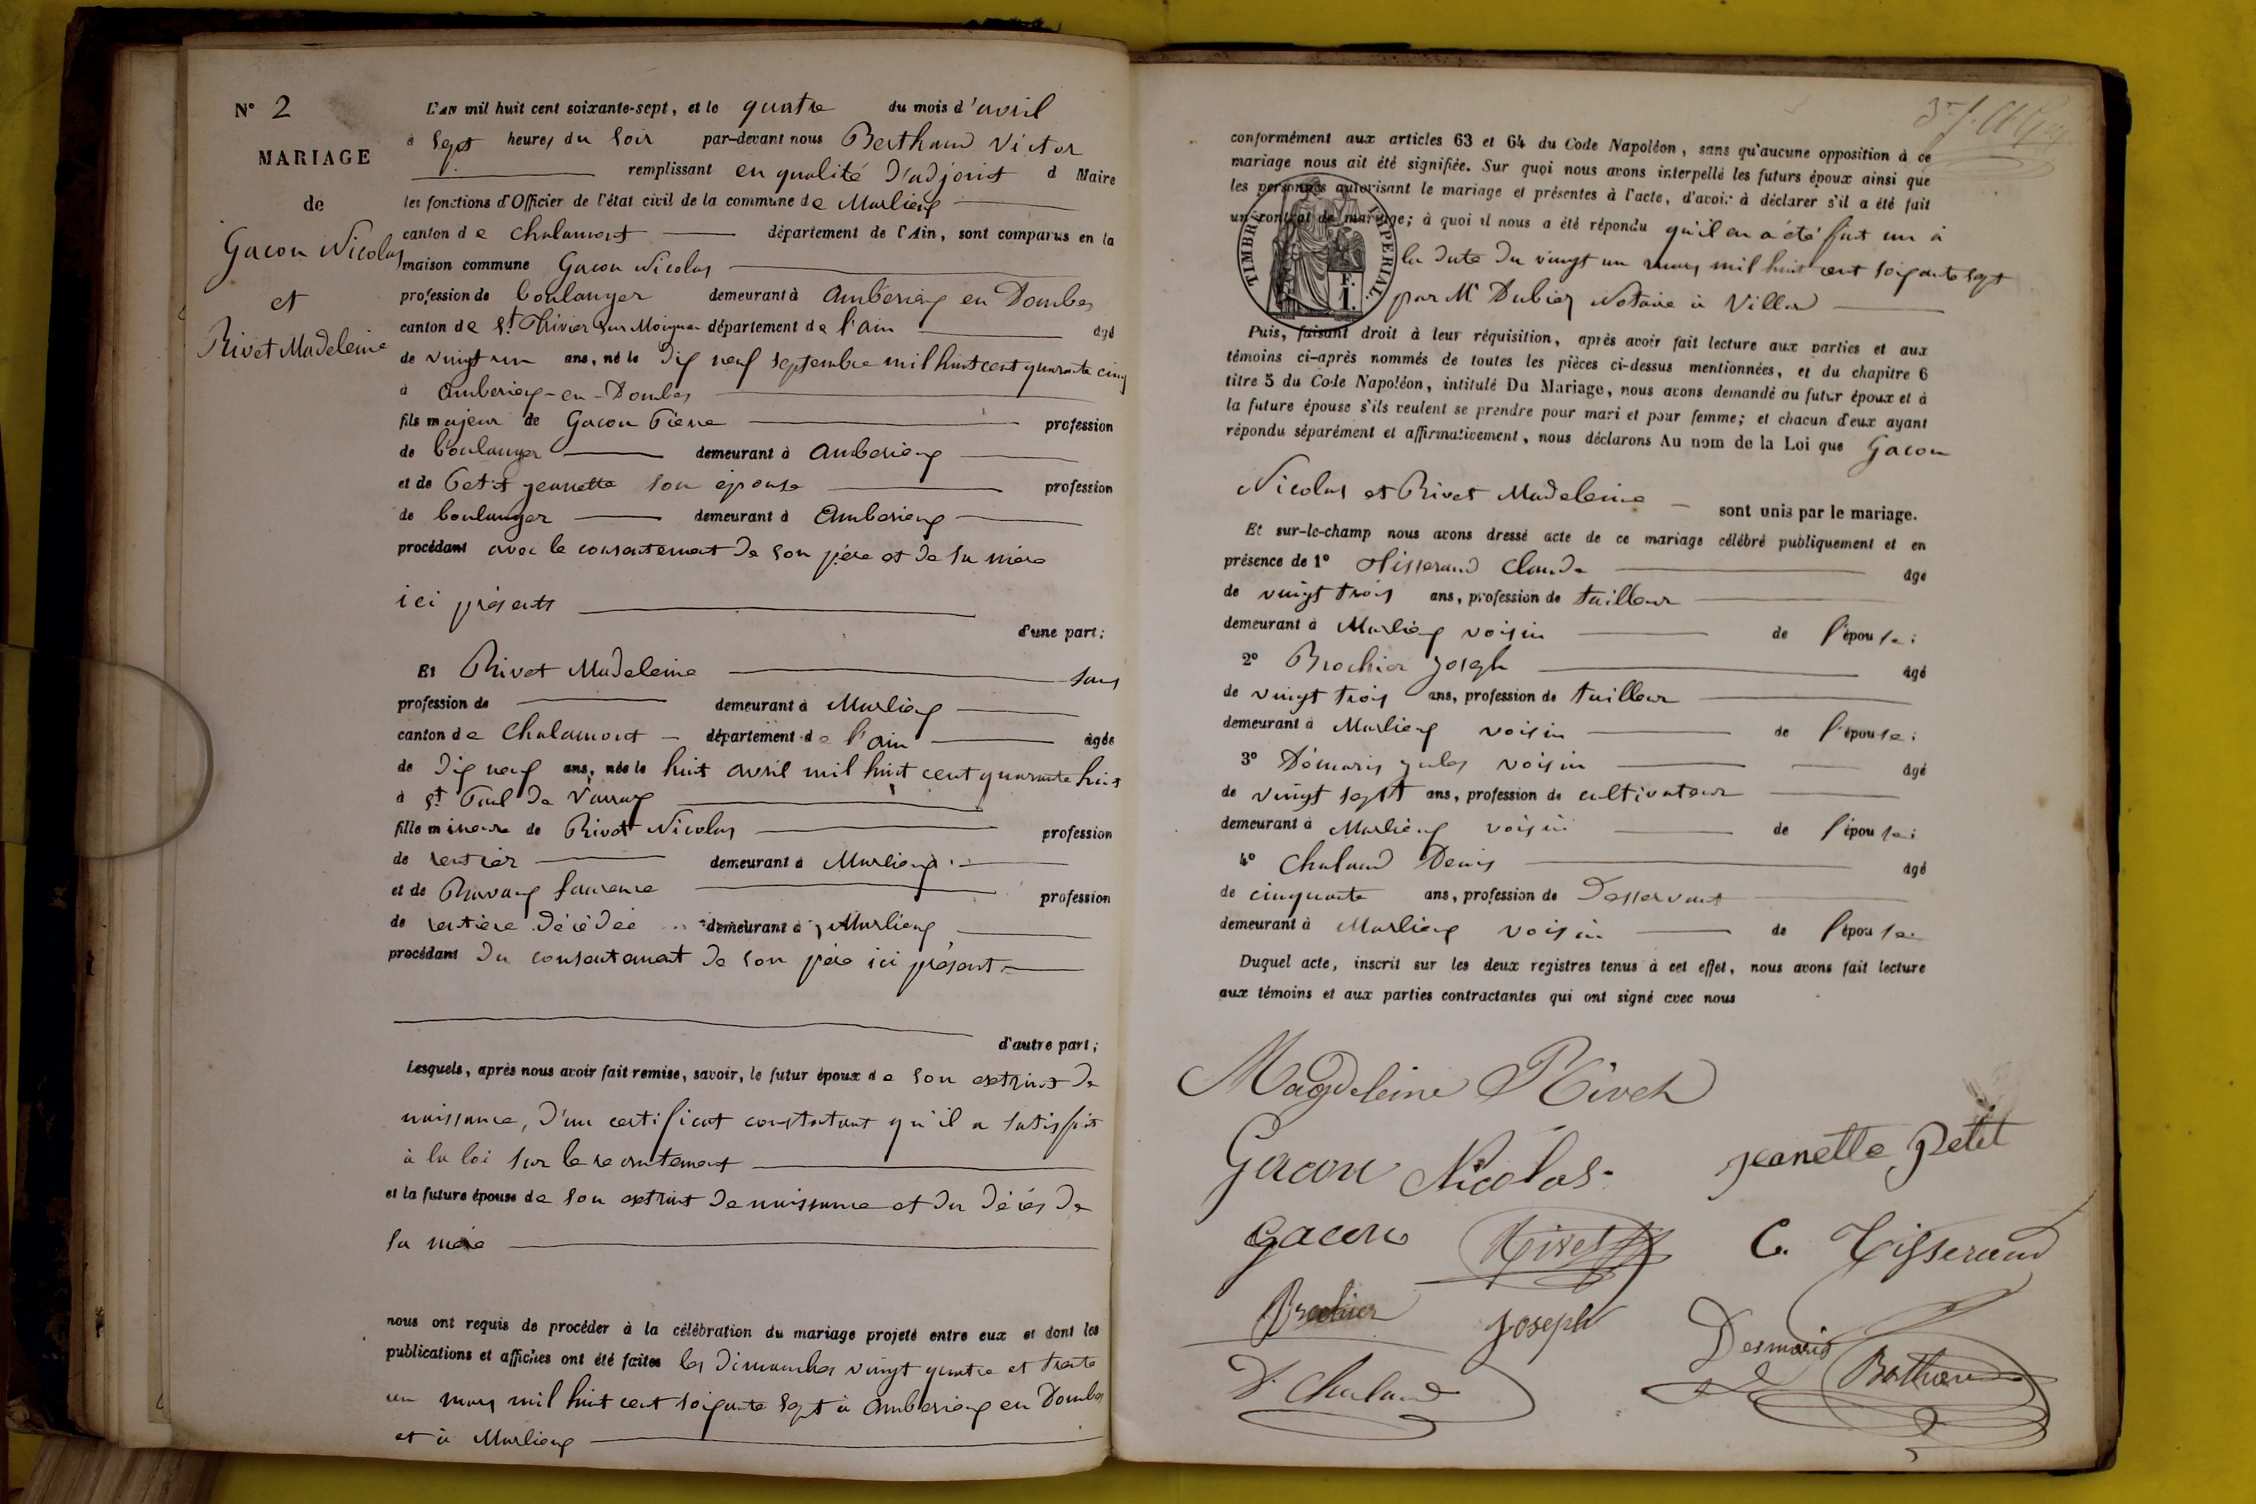 N° 2
MARIAGE
de
Gacon Nicolas
et
Rivet Madeleine
L'AN mil huit cent soixante-sept, et le quatre du mois d'avril
à sept heures du soir par-devant nous Berthaud Victor
remplissant en qualité d'adjoint d Maire
les fonctions d'Officier de l'état civil de la commune de Marlieux
canton de Chalamont département de l'Ain, sont comparus en la
maison commune Gacon Nicolas
profession de boulanger demeurant à Ambérieux en Dombes
canton de St Trivier sur Moignan département de l'ain âgé
de vingt un ans, né le dix neuf septembre mil huit cent quarante cinq
à Amberieux-en-Dombes
fils majeur de Gacon Pierre profession
de boulanger demeurant à Amberieux
et de Petit jeannette son épouse profession
de boulanger demeurant à Amberieux
procédant avec le consentement de son père et de sa mère
ici présents
d'une part;
Et Rivet Madeleine sans
profession de demeurant à Marlieux
canton de Chalamont département de l'ain âgée
de dix neuf ans, née le huit avril mil huit cent quarante huit
à St Paul de Varrax
fille mineure de Rivet Nicolas profession
de rentier demeurant à Marlieux
et de Laurence profession
de rentière décédée demeurant à Marlieux
procédant du consentement de son père ici présent
d'autre part;
Lesquels, après nous avoir fait remise, savoir, le futur époux de son extrait de
naissance, d'un certificat constatant qu'il a satisfait
à la loi sur le recrutement
et la future épouse de son extrait de naissance et du décès de
sa mère
nous ont requis de procéder à la célébration du mariage projeté entre eux et dont les
publications et affiches ont été faites les dimanches vingt quatre et trente
un mars mil huit cent soixante sept à Amberieux en Dombes
et à Marlieux
conformément aux articles 63 et 64 du Code Napoléon, sans qu'aucune opposition à ce
mariage nous ait été signifiée. Sur quoi nous avons interpellé les futurs époux ainsi que
les personnes autorisant le mariage et présentes à l'acte, d'avoir à déclarer s'il a été fait
un contrat de mariage; à quoi il nous a été répondu qu'il en a été fait un à
la date du vingt un mars mil huit cent soixante sept
par Me Dubiez Notaire à Villard
TIMBRE IMPERIAL.
1 F.
Puis, faisant droit à leur réquisition, après avoir fait lecture aux parties et aux
témoins ci-après nommés de toutes les pièces ci-dessus mentionnées, et du chapitre 6
titre 5 du Code Napoléon, intitulé Du Mariage, nous avons demandé au futur époux et à
la future épouse s'ils veulent se prendre pour mari et pour femme; et chacun d'eux ayant
répondu séparément et affirmativement, nous déclarons Au nom de la Loi que Gacon
Nicolas et Rivet Madeleine sont unis par le mariage.
Et sur-le-champ nous avons dressé acte de ce mariage célébré publiquement et en
présence de 1° Tisserand Claude âgé
de vingt trois ans, profession de tailleur
demeurant à Marlieux voisin de l'épouse;
2° Brochier joseph âgé
de vingt trois ans, profession de tailleur
demeurant à Marlieux voisin de l'épouse;
3° Démaris jules voisin âgé
de vingt sept ans, profession de cultivateur
demeurant à Marlieux voisin de l'épouse;
4° Chaland Denis âgé
de cinquante ans, profession de Desservant
demeurant à Marlieux voisin de l'épouse.
Duquel acte, inscrit sur les deux registres tenus à cet effet, nous avons fait lecture
aux témoins et aux parties contractantes qui ont signé avec nous
Magdeleine Rivet
Gacon Nicolas jeanette Petit
Gacon Rivet C. Tisserand
Brochier Joseph Desmaris
D. Chaland Berthaud